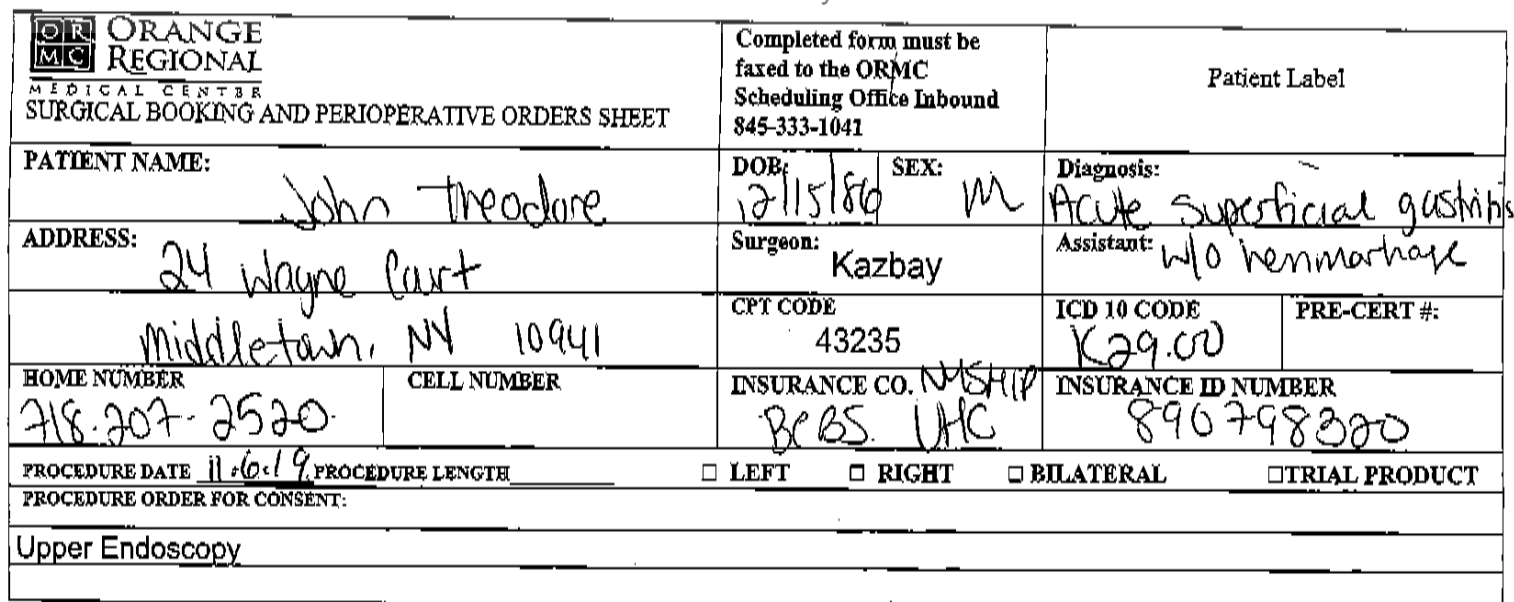 OR MC ORANGE REGIONAL
MEDICAL CENTER
SURGICAL BOOKING AND PERIOPERATIVE ORDERS SHEET
Completed form must be
faxed to the ORMC
Scheduling Office Inbound
845-333-1041
Patient Label
PATIENT NAME: John Theodore
DOB: 12/15/86
SEX: M
Diagnosis: Acute superficial gastritis
ADDRESS: 24 Wayne Court
Surgeon: Kazbay
Assistant: w/o hemmorhage
Middletown, NY 10941
CPT CODE 43235
ICD 10 CODE K29.00
PRE-CERT #:
HOME NUMBER 718-207-2520
CELL NUMBER
INSURANCE CO. NYSHIP
BCBS. UHC
INSURANCE ID NUMBER 890798320
PROCEDURE DATE 11.6.19 PROCEDURE LENGTH □ LEFT □ RIGHT □ BILATERAL □ TRIAL PRODUCT
PROCEDURE ORDER FOR CONSENT:
Upper Endoscopy